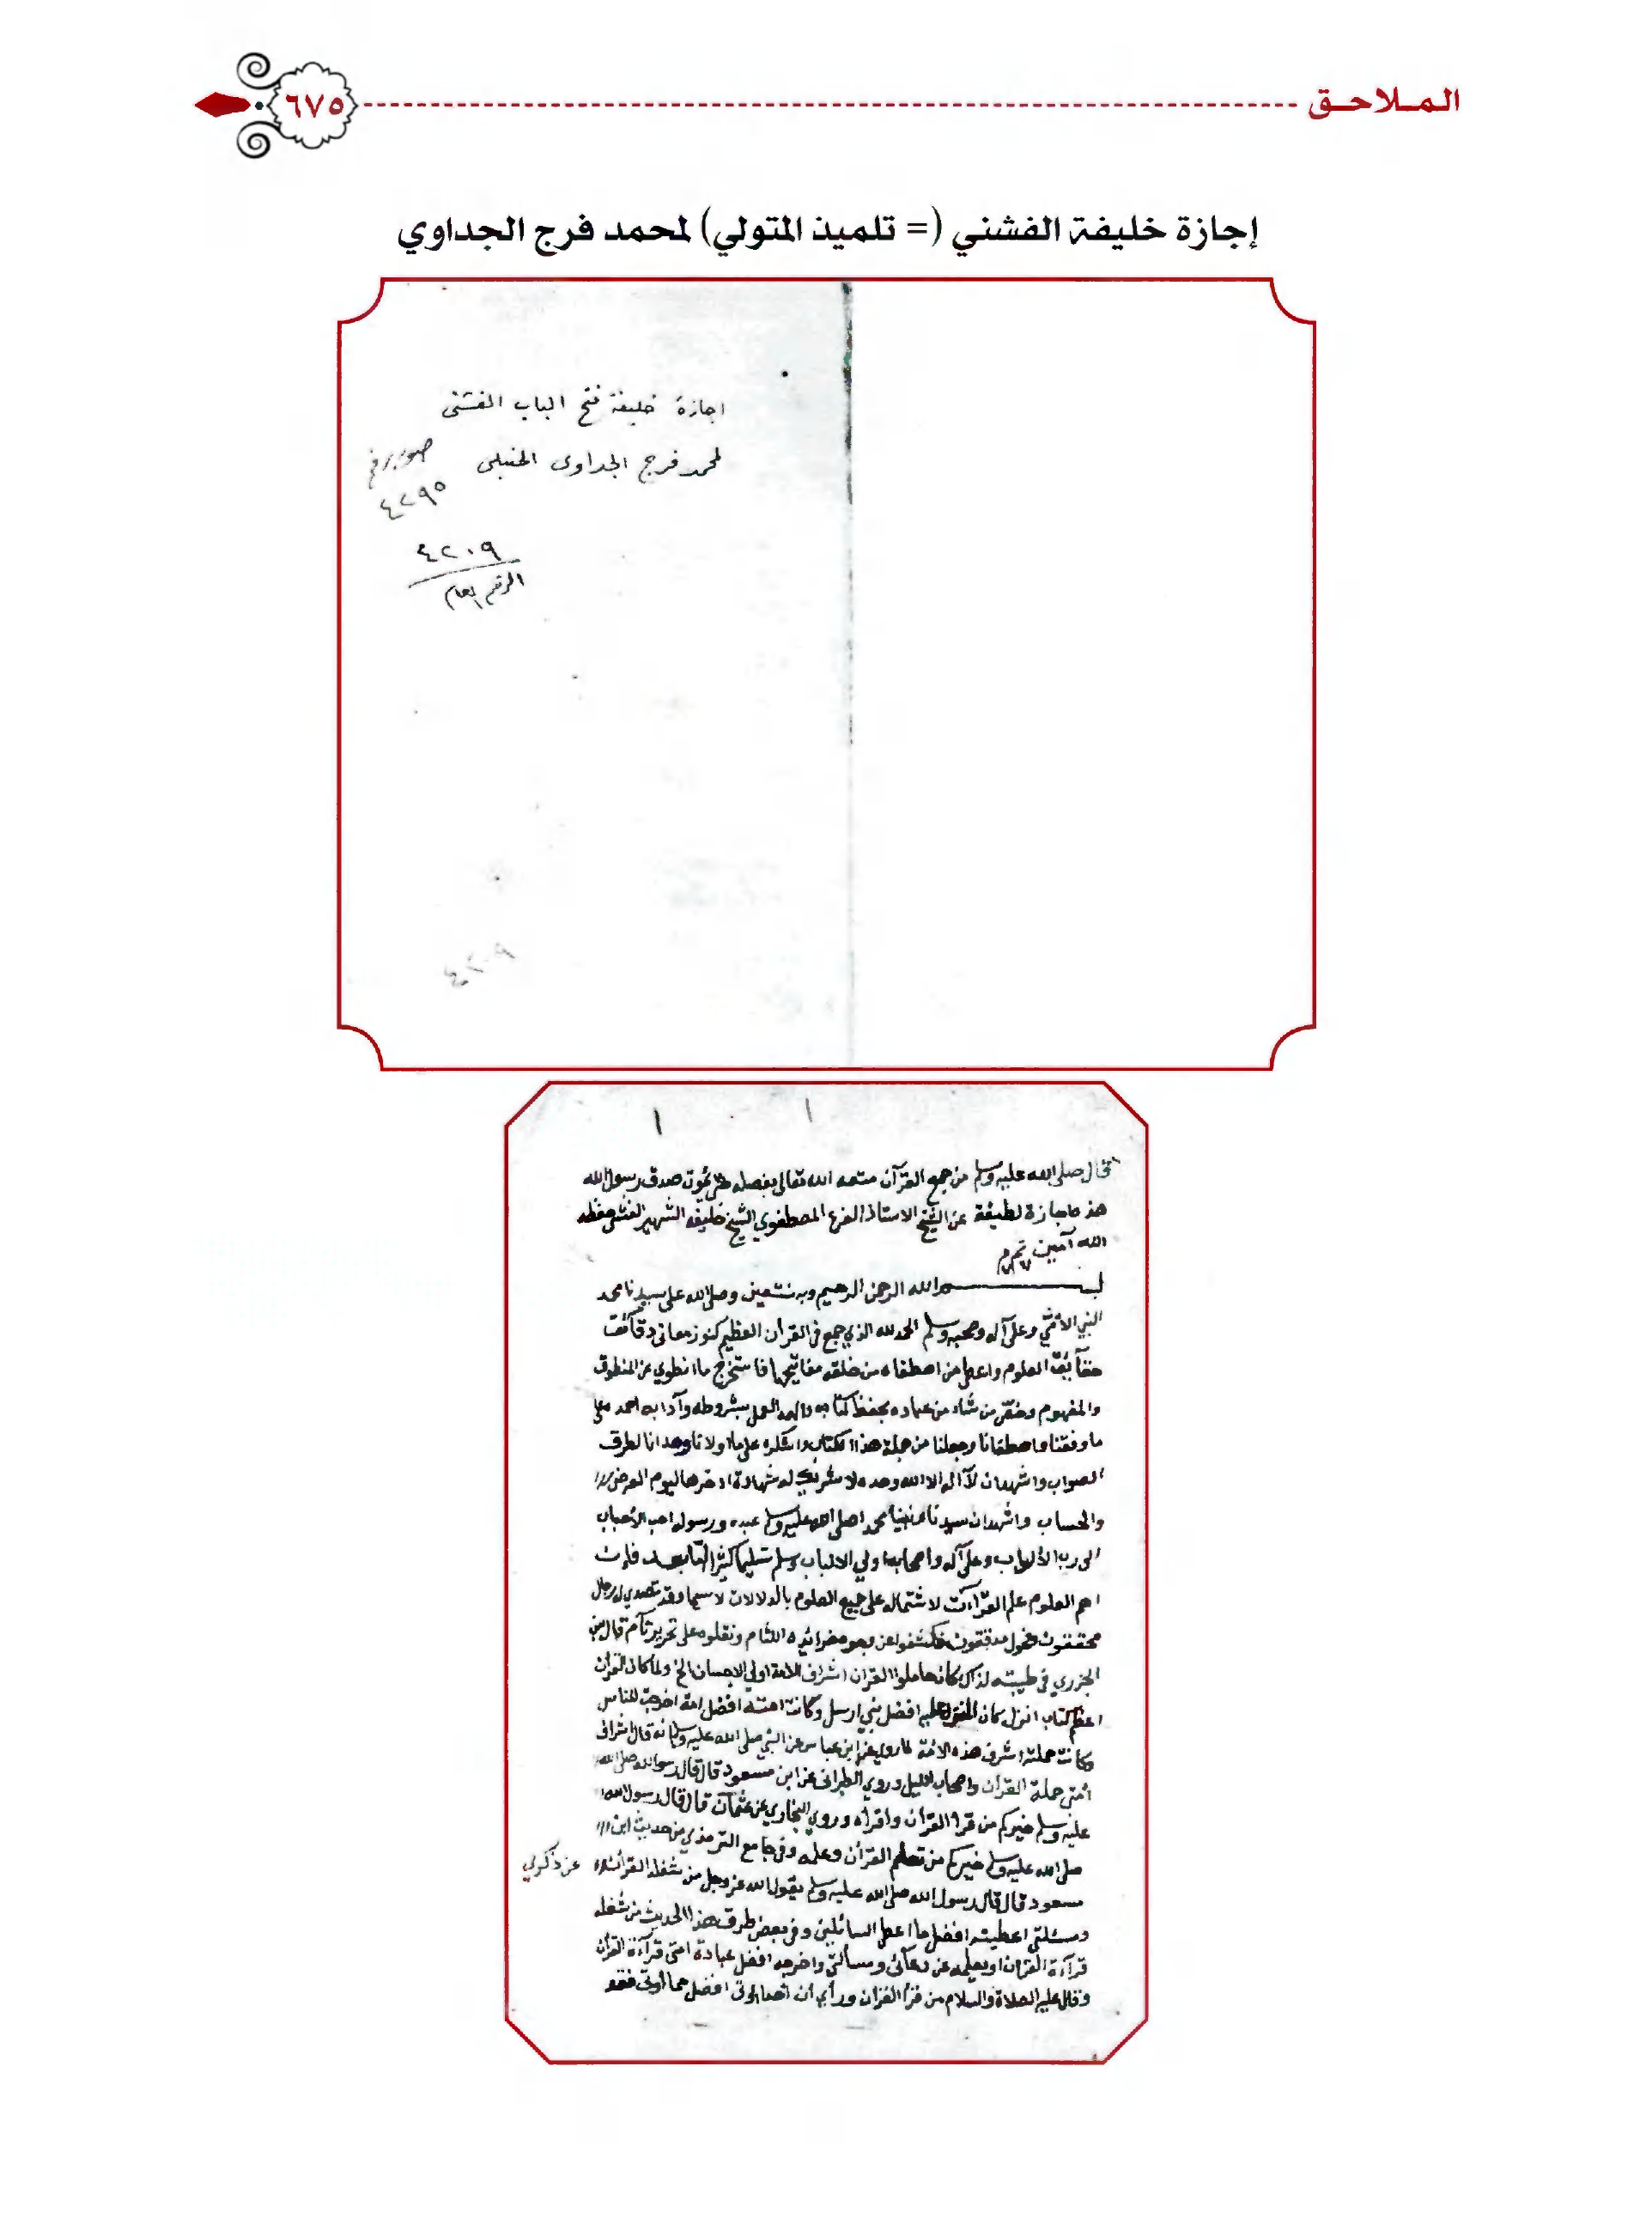 الملاحق
٦٧٥
إجازة خليفة الفشني (= تلميذ المتولي) لمحمد فرج الجداوي
اجازة خليفة فتح الباب الفشنى
لمحمد فرج الجداوى الحنبلى
٤٢٩٥
٤٢٠٩
الرقم العام
٤٢٠٩
١ ١
قال صلى الله عليه وسلم من جمع القرآن متعه الله تعالى بعقله حتى يموت صدق رسول الله
هذه اجازة لطيفة عن الشيخ الاستاذ الفرع المصطفوي الشيخ خليفه الشهير الفشني حفظه
الله آمين
بسم الله الرحمن الرحيم وبه نستعين وصلى الله على سيدنا محمد
النبي الأمي وعلى آله وصحبه وسلم الحمد لله الذي جمع في القرآن العظيم كنوز معاني دقائق
حقائق العلوم واعطى من اصطفاه من خلقه مفاتيحها فاستخرج ما انطوي من المنطوق
والمفهوم وخص من شاء من عباده بحفظ كتابه العمل بشروطه وآدابه احمده على
ما وفقنا واصطفانا وجعلنا من حملة هذا الكتاب واشكره على ما اولانا وهدانا لطرق
الصواب واشهد ان لا اله الا الله وحده لا شريك له شهادة ادخرها ليوم العرض
والحساب واشهد ان سيدنا ونبينا محمدا صلى الله عليه وسلم عبده ورسوله احب الأحباب
الى رب الأرباب وعلى آله واصحابه اولي الالباب وسلم تسليما كثيرا اما بعد فإن
اهم العلوم علم القرآت لاشتماله على جميع العلوم بالدلالات لاسيما وقد تصدي له رجال
محققون فحول مدققون فكشفوا عن وجوه فرائده اللثام ونقلوه على تحرير تام قال ابن
الجزري في طيبته لذاك كان حاملوا القرآن اشراف الامة اولي الاحسان الخ ولما كان القرآن
اعظم كتاب انزل كان المنزل عليه افضل نبي ارسل وكانت امته افضل امة اخرجت للناس
وكانت حملته اشرف هذه الأمة لما روي عن ابن عباس عن النبي صلى الله عليه وسلم انه قال اشراف
أمتي حملة القرآن واصحاب الليل وروي الطبراني عن ابن مسعود قال قال رسول الله صلى الله
عليه وسلم خيركم من قرأ القرآن واقرأه وروي البخاري عن عثمان قال قال رسول الله
صلى الله عليه وسلم خيركم من تعلم القرآن وعلمه وفي جامع الترمذي من حديث ابن
مسعود قال قال رسول الله صلى الله عليه وسلم يقول الله عز وجل من شغله القرآن
عن ذكري
ومسئلتي اعطيته افضل ما اعطي السائلين وفي بعض طرق هذا الحديث من شغله
قرآءة القرآن او تعلمه عن دعآئي ومسألتي واخرجه افضل عبادة امتي قرآءة القرآن
وقال عليه الصلاة والسلام من قرأ القرآن ورأى ان احدا اوتي افضل مما اوتي فقد